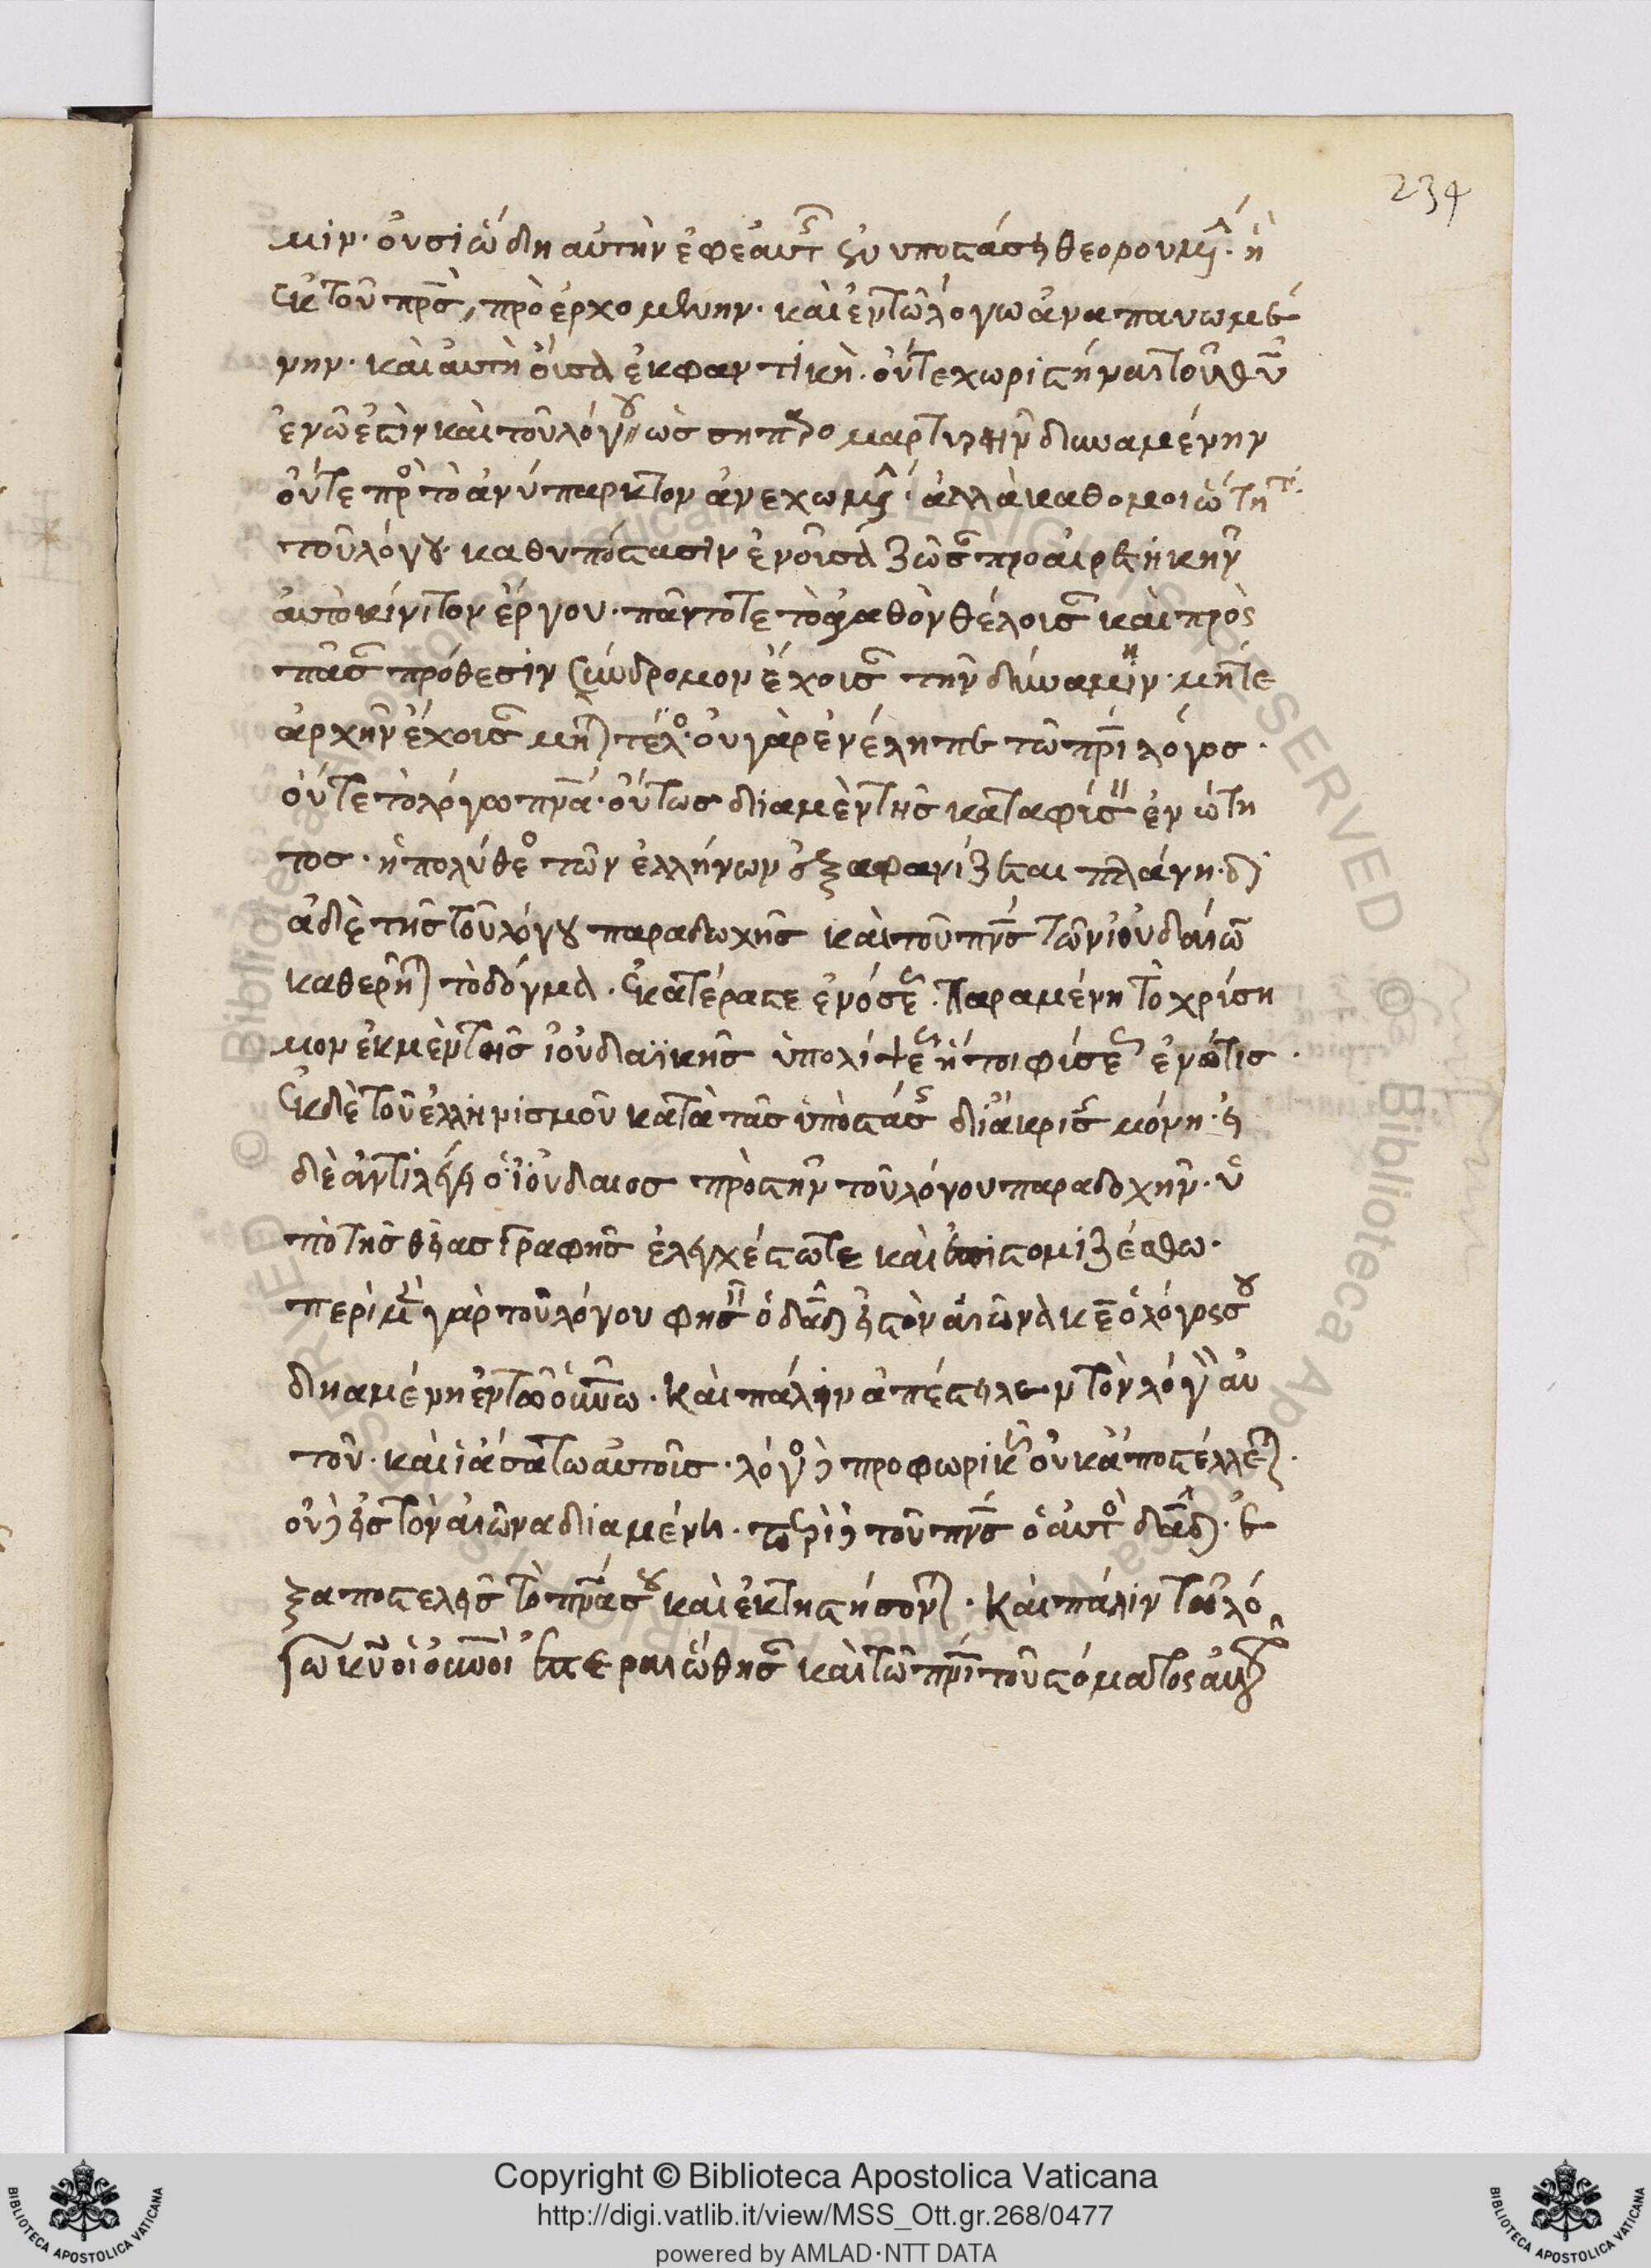 234
μιν· οὐσιώδη αὐτὴν ἐφεαυτ ἐν υποστάσει θεορουμ· ἡ
ἐκ τοῦ πρς, πρὸερχομένην· καὶ ἐν τῶ λόγω ἀναπαυωμέ
νην· καὶ αυτὴ οὖσα ἐκφαντικὴ· οὔτε χωριστήναι τοῦ θυ
ἐν ὧ ἐστὶν καὶ τοῦ λόγου ὡς σηπρο μαρτυρῆν δυναμένην
οὔτε πρὸ τὸ ἀνύπαρκτον ἀνεχωμ· ἀλλὰ καθομοιώτητ
τοῦ λόγου· καθυπόστασιν ἐνοῦσα ζῶσ προαιρετήκην
αὐτὸκίνιτον ἔργου· πάντοτε τὸ ἀγαθὸν θέλουσ καὶ πρὸς
πᾶσ πρόθεσιν σύνδρομον ἔχουσ τὴν δύναμιν· μήτε
ἀρχὴν ἔχουσ μήτε τέλο· οὐ γὰρ ἐνέλησπε τῶ πρὶ λόγος·
οὔτε τὸ λόγω πνα· οὕτως διαμὲν τῆς κατα φίσ ἐνώτη
τος· ἡ πολύθεο τῶν ἑλλήνων ἐξαφανίζεται πλάνη· δι
α δὲ τῆς τοῦ λόγου παραδωχῆς καὶ τοῦ πνς τῶν ἰουδαίω
καθερῆται τὸ δόγμα· ἐκατέρας τε ἐνόσε· Παραμένη τὸ χρίση
μον ἐκ μὲν τοῆς ἰουδαϊκῆς ὑπολίψε ἤτοι φίσε ἐνώτις·
ἐκ δὲ τοῦ ἑλληνισμοῦ κατὰ τὰς ὑποστάσ διάκρισ μόνη· εἰ
δὲ ἀντιλέγει ὁ ἰουδαιος πρὸς τὴν τοῦ λόγου παραδοχὴν· ὑ
πὸ τῆς θείας γραφῆς ἐλεγχέστωτε καὶ ἐπιστομιζέσθω·
περὶ μὲν γὰρ τοῦ λόγου φησ ὁ δαδ εἰς τὸν αἰῶνα κε ὁ λόγος σου
διαμένη ἐν τῶ οὐνω· Καὶ πάλιν ἀπέστειλεν τὸν λόγον αὐ
τοῦ· καὶ ἰάσατω αυτοῖς· λόγο δὲ προφωρικ οὐκ ἀποστέλλεται·
οὐδὲ εἰς τὸν αἰῶνα διαμένει· περὶ δὲ τοῦ πνς ὁ αὐτο δαδ· ἐ
ξαποστελεῖς τὸ πνα σου καὶ ἐκτηστήσονται· Καὶ πάλιν Τῶ λό
γω κυ οἱ οὐνοὶ ἐστεραιώθησ καὶ τῶ πνι τοῦ στόματος αυτοῦ
Copyright © Biblioteca Apostolica Vaticana
http://digi.vatlib.it/view/MSS_Ott.gr.268/0477
powered by AMLAD·NTT DATA